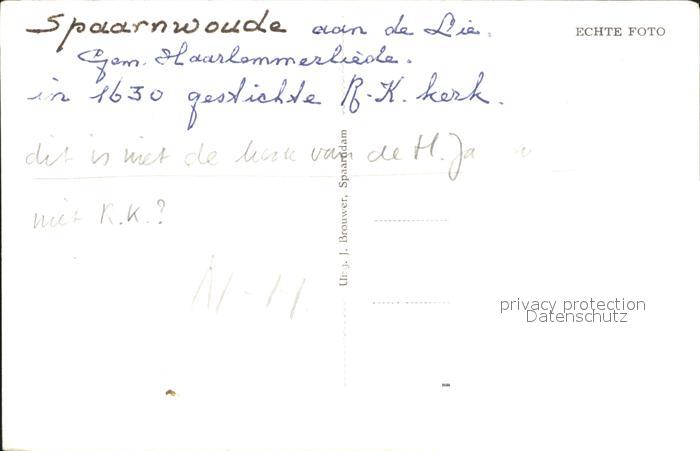 Spaarnwoude aan de Lie.
ECHTE FOTO
Gem. Haarlemmerliede.
in 1630 gestichte R.-K. kerk.
dit is niet de kerk van de H. Ja
niet R.K.?
N-H.
Uitg. J. Brouwer, Spaarndam
privacy protection
Datenschutz